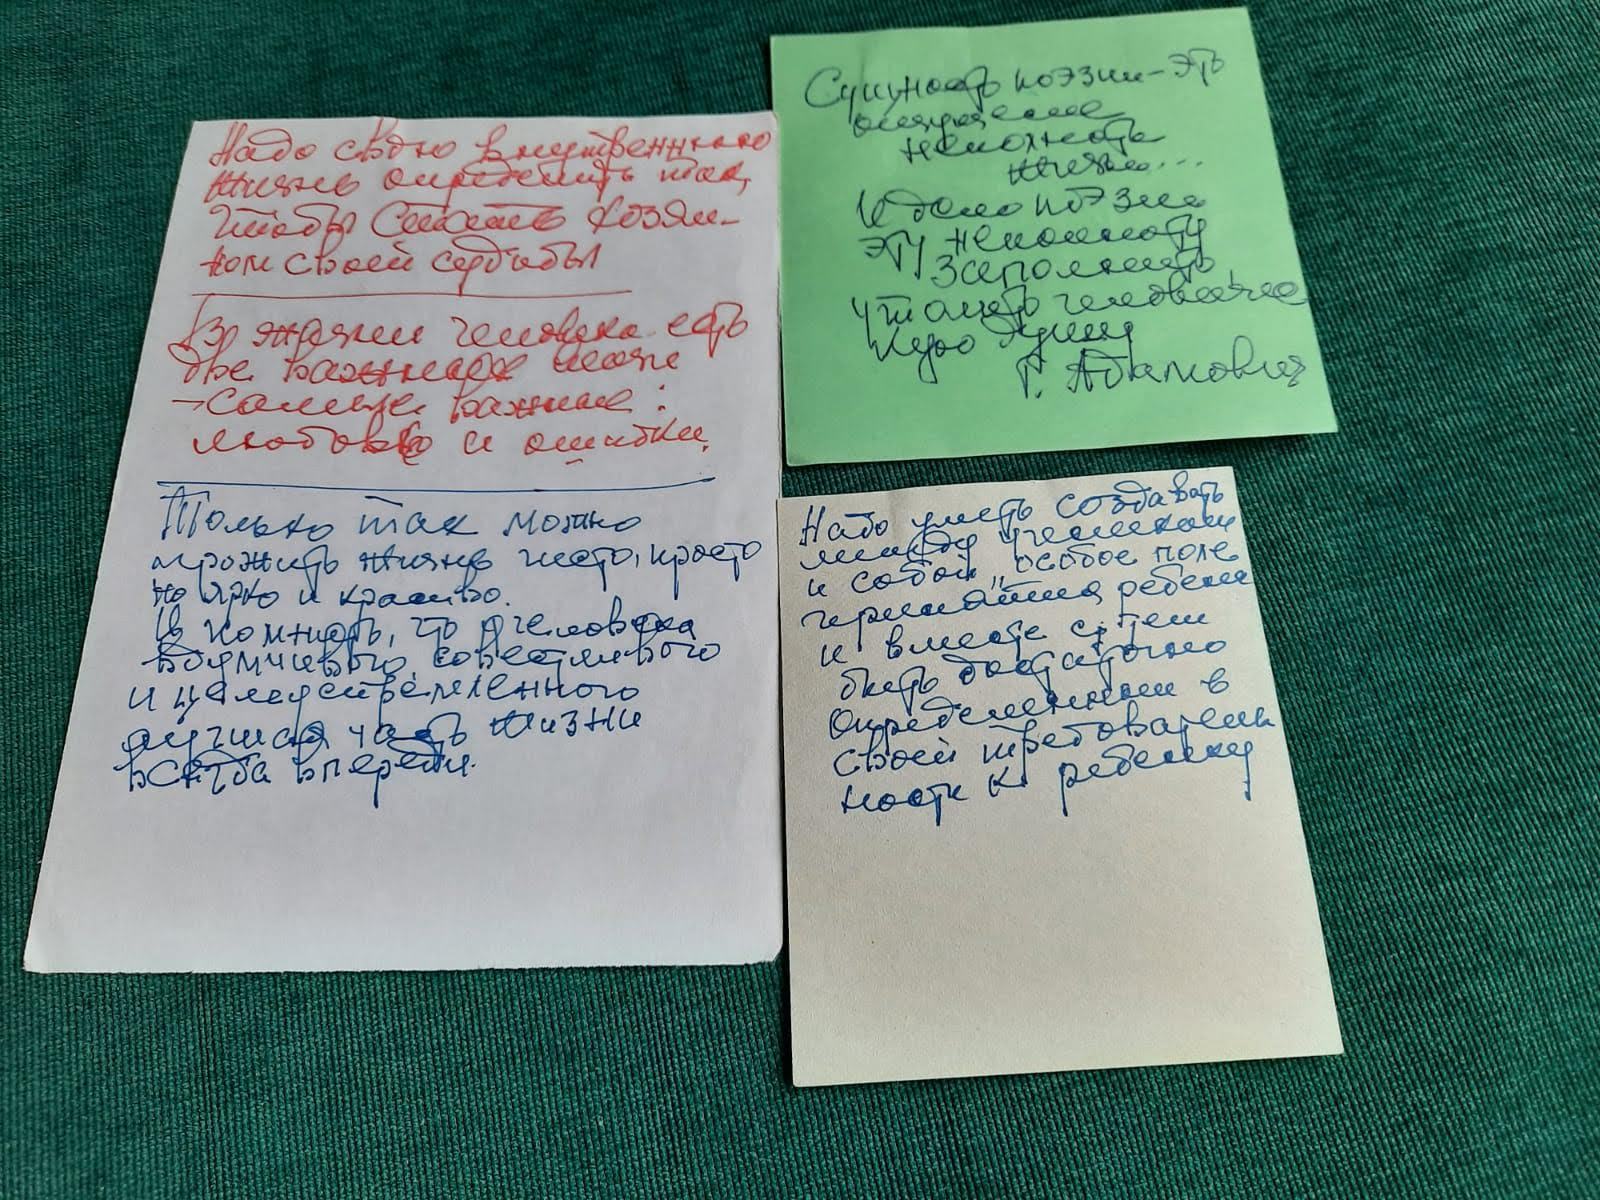 Надо свою внутреннюю
жизнь определить так,
чтобы стать хозяи-
ном своей судьбы
В жизни человека есть
две важные вещи
- самые важные:
любовь и ошибки.
Только так можно
прожить жизнь чисто, просто
но ярко и красиво.
И помнить, что у человека
вдумчивого, совестливого
и целеустремленного
лучшая часть жизни
всегда впереди.
Сущность поэзии - это
ощущение
неполноты
жизни...
И дело поэзии
эту неполноту
заполнить,
утолить человечес-
кую душу
Г. Адамович
Надо уметь создавать
между учеником
и собой "особое поле
притяжения ребенка
и вместе с тем
быть достаточно
определенным в
своей требователь
ности к ребенку